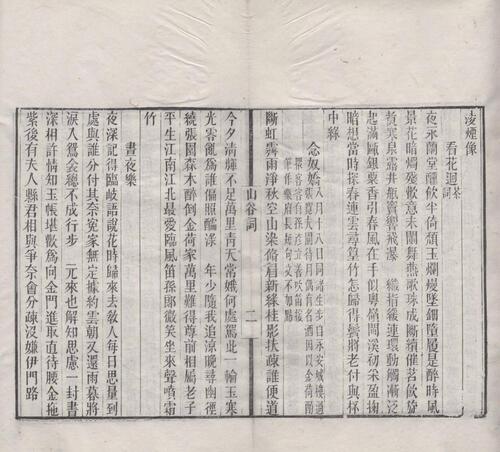 凌煙像
看花迴 茶詞
夜永蘭堂醺飲半倚頹玉爛熳墜鈿墮履是醉時風
景花暗燭殘歡意未闌舞燕歌珠成斷續催茗飲旋
煑寒泉露井瓶竇響飛瀑 纖指緩連環動觸漸泛
起滿甌銀粟香引春風在手似粵嶺閩溪初采盈掬
暗想當時探春連雲尋篁竹怎歸得鬢將老付與杯
中綠
念奴嬌 八月十八日同諸生步自永安城樓過
張寬夫園待月偶有名酒因以金荷酌
眾客客有孫彥立善吹笛援
筆作樂府長短句文不加點
斷虹霽雨淨秋空山染脩眉新綠桂影扶疎誰便道
山谷詞 二
今夕清輝不足萬里青天常娥何處駕此一輪玉寒
光零亂為誰偏照醽淥 年少隨我追涼晚尋幽徑
繞張園森木醉倒金荷家萬里難得尊前相屬老子
平生江南江北最愛臨風笛孫郎微笑坐來聲噴霜
竹
晝夜樂
夜深記得臨岐語說花時歸來去教人每日思量到
處與誰分付其奈冤家無定據約雲朝又還雨暮將
淚入鴛衾總不成行步 元來也解知思慮一封書
深相許情知玉帳堪歡為向金門進取直待腰金拖
紫後有夫人縣君相與爭奈會分疎沒嫌伊門路